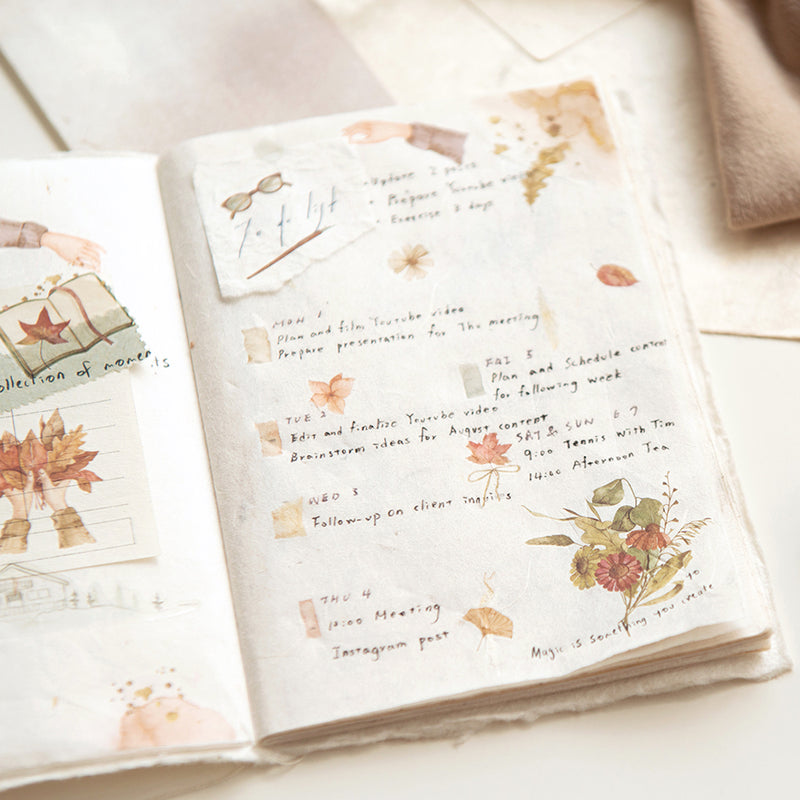 Collection of moments
To do list
• Update 2 posts
• Prepare Youtube video
• Exercise 3 days
MON 1
Plan and film Youtube video
Prepare presentation for Thu meeting
TUE 2
Edit and finalize Youtube video
Brainstorm ideas for August content
WED 3
Follow-up on client inquiries
THU 4
Meeting
Instagram post
FRI 5
Plan and Schedule content
for following week
SAT & SUN 6 7
9:00 Tennis with Tim
14:00 Afternoon Tea
Magic is something you create